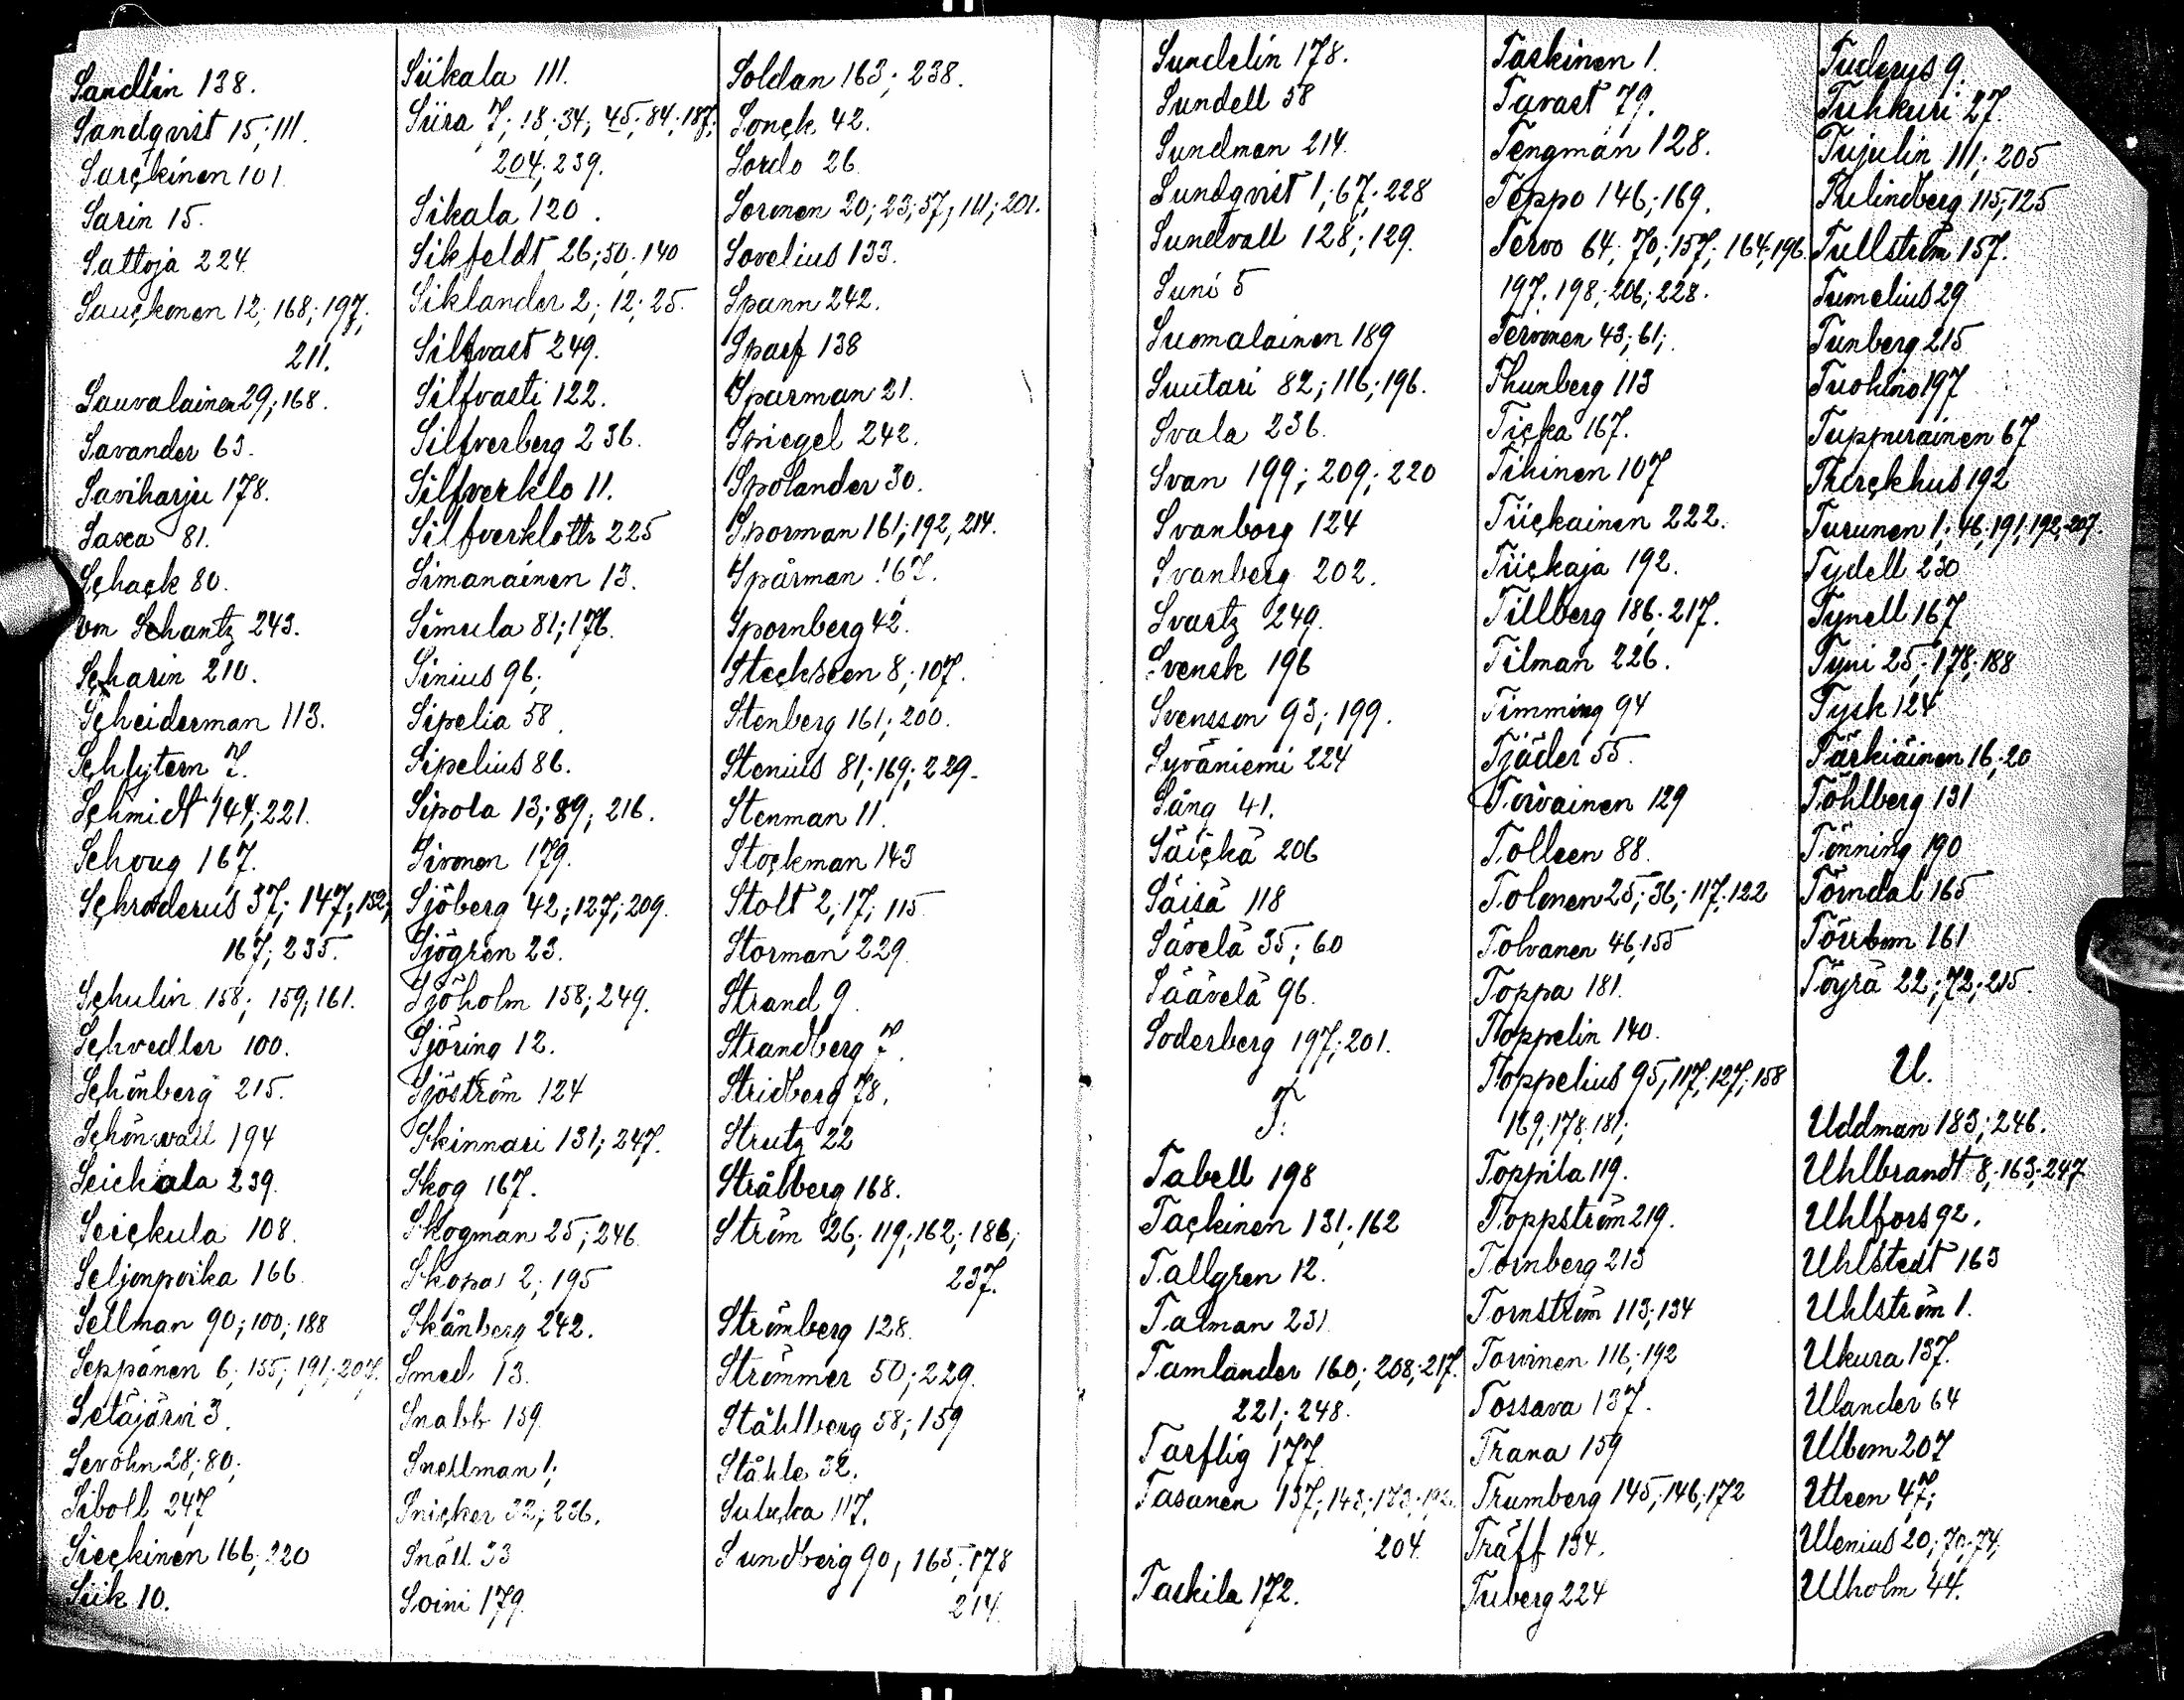 Sandlin 138.
Sandqvist 15; 111.
Sarckinen 101
Sarin 15.
Sattoja 224
Sauckonen 12; 168; 197;
211.
Sauvalainen 29; 168.
Savander 63.
Saviharju 178.
Saxa 81.
Schack 80.
von Schantz 243.
Scharin 210.
Scheiderman 113.
Schlytern 7.
Schmidt 144; 221.
Schoug 167.
Schroderus 37; 147; 152;
167; 235.
Schulin 158; 159; 161.
Schvedler 100.
Schönberg 215.
Schönvall 194
Seickala 239.
Seickula 108.
Seljonpoika 166
Sellman 90; 100; 188
Seppänen 6; 155; 191; 207.
Setäjärvi 3.
Sevohn 28; 80;
Siboll 247
Sieckinen 166; 220
Siik 10.
Siikala 111.
Siira 7; 18; 34; 45; 84; 187;
204; 239.
Sikala 120.
Sikfeldt 26; 50; 140
Siklander 2; 12; 25.
Silfvast 249.
Silfvasti 122.
Silfverberg 236.
Silfverklo 11.
Silfverklott 225
Simanainen 13.
Simula 81; 176.
Sinius 96;
Sipelia 58
Sipelius 86.
Sipola 13; 89; 216.
Sironen 179.
Sjöberg 42; 127; 209.
Sjögren 23.
Sjöholm 158; 249.
Sjöring 12.
Sjöström 124
Skinnari 131; 247.
Skog 167.
Skogman 25; 246
Skopa 2; 195
Skånberg 242.
Smed 13.
Snabb 159
Snellman 1;
Snicker 32; 236.
Snäll 33
Soini 179
Soldan 163; 238.
Sonck 42.
Sordo 26
Soronen 20; 23; 57; 111; 201.
Sovelius 133.
Spann 242.
Sparf 138
Sparman 21.
Spiegel 242.
Spolander 30.
Sporman 161; 192, 214.
Spårman 167.
Spornberg 42.
Steckseen 8; 107.
Stenberg 161; 200.
Stenius 81; 169; 229.
Stenman 11.
Stockman 143
Stolt 2; 17; 115
Storman 229
Strand 9
Strandberg 7.
Stridberg 78.
Strutz 22
Strålberg 168.
Ström 26; 119; 162; 186;
237.
Strömberg 128.
Strömmer 50; 229.
Ståhlberg 58; 159
Ståhle 32.
Sulucka 117.
Sundberg 90; 165; 178
214.
Sundelin 178.
Sundell 58
Sundman 214.
Sundqvist 1; 67; 228
Sundvall 128; 129.
Suni 5
Suomalainen 189
Suutari 82; 116; 196.
Svala 236.
Svan 199; 209; 220
Svanborg 124
Svanberg 202.
Svartz 249.
Svensk 196
Svensson 93; 199.
Syväniemi 224
Sång 41.
Säickä 206
Säisä 118
Sävelä 35; 60
Säävelä 96.
Soderberg 197; 201.
T.
Tabell 198
Tackinen 131; 162
Tallgren 12.
Talman 231
Tamlander 160; 208; 217.
221; 248.
Tarflig 177
Tasanen 137; 143; 173;
204.
Taskila 172.
Taskinen 1.
Tavast 79.
Tengman 128.
Teppo 146; 169.
Tervo 64; 70; 157; 164; 196.
197. 198; 206; 228.
Tervonen 43; 61;
Thunberg 113
Ticka 167.
Tihinen 107
Tiickainen 222.
Tiickaja 192.
Tillberg 186; 217.
Tilman 226.
Timming 94
Tjäder 55.
Toivainen 129
Tolleen 88.
Tolonen 25; 36; 117; 122
Tolvanen 46; 155
Toppa 181.
Toppelin 140.
Toppelius 95; 117; 127; 158
169; 178; 181;
Toppila 119.
Toppström 219.
Tornberg 213
Tornström 113; 134
Torvinen 116; 192
Tossava 137.
Trana 159
Trumberg 145; 146; 172
Träff 134.
Tuberg 224
Tuderus 9.
Tuhkuri 27
Tujulin 111; 205
Tulindberg 115; 125
Tullström 157.
Tumelius 29
Tunberg 215
Tuohino 197
Tuppurainen 67
Turckhus 192
Turunen 1; 46; 191; 192; 207.
Tydell 230
Tynell 167
Tyni 25; 178; 188
Tysk 124
Tärkiäinen 16; 20
Töhlberg 131
Tönning 190
Törndal 165
Törrbom 161
Töyrä 22; 72; 215.
U.
Uddman 183; 246.
Uhlbrandt 8; 163; 247
Uhlfors 92.
Uhlstedt 163
Uhlström 1.
Ukura 137.
Ulander 64
Ulbom 207
Uleen 47;
Ulenius 20; 70; 74;
Ulholm 44.